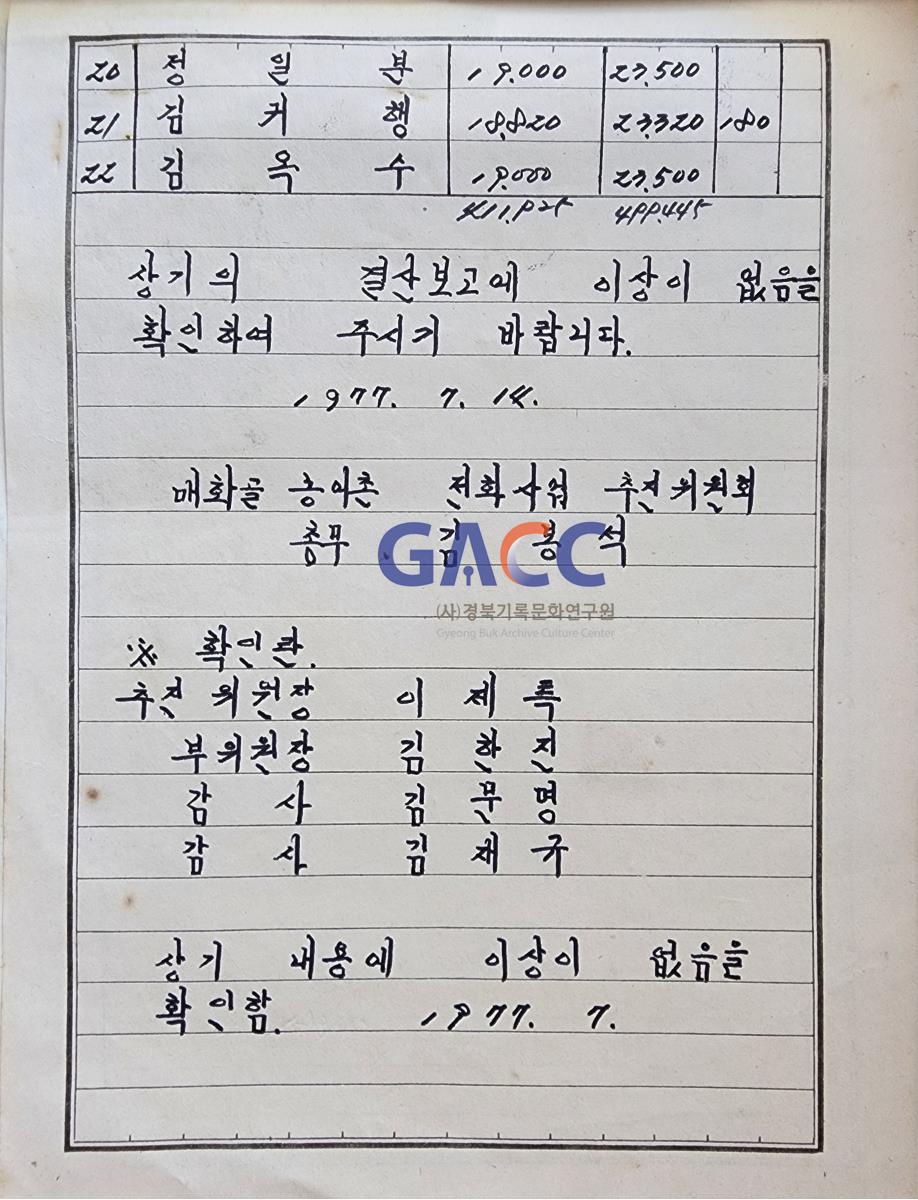 20 정 일 분 19.000 23.500
21 김 귀 행 18.820 23.320 180
22 김 옥 수 19.000 23.500
411.925 499.445
상기의 결산보고에 이상이 없음을
확인하여 주시기 바랍니다.
1977. 7. 14.
매화골 농어촌 전화사업 추진위원회
총무. 김 봉 석
GACC
(사)경북기록문화연구원
Gyeong Buk Archive Culture Center
※ 확인란.
추진 위원장 이 제 특
부위원장 김 한 진
감 사 김 문 명
감 사 김 재 규
상기 내용에 이상이 없음을
확인함. 1977. 7.